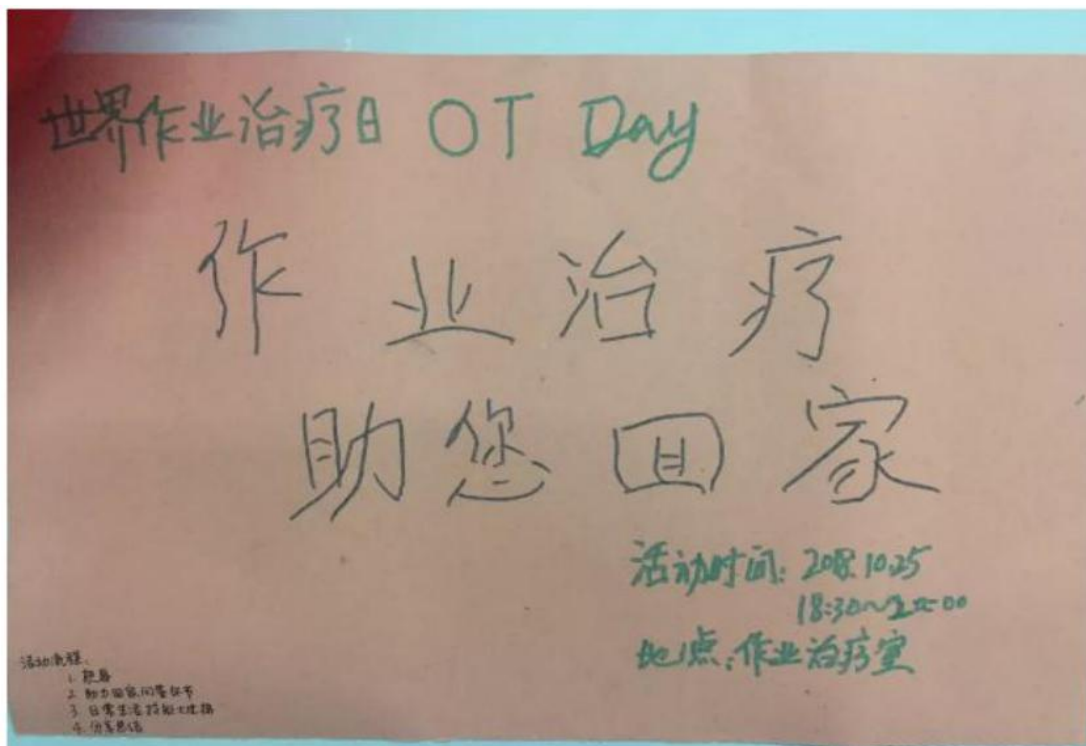 世界作业治疗日 OT Day
作业治疗
助您回家
活动时间: 2018.10.25
18:30~
地点:作业治疗室
活动流程:
1. 热身
2. 助力回家问答环节
3. 日常生活技能大比拼
4. 分享总结